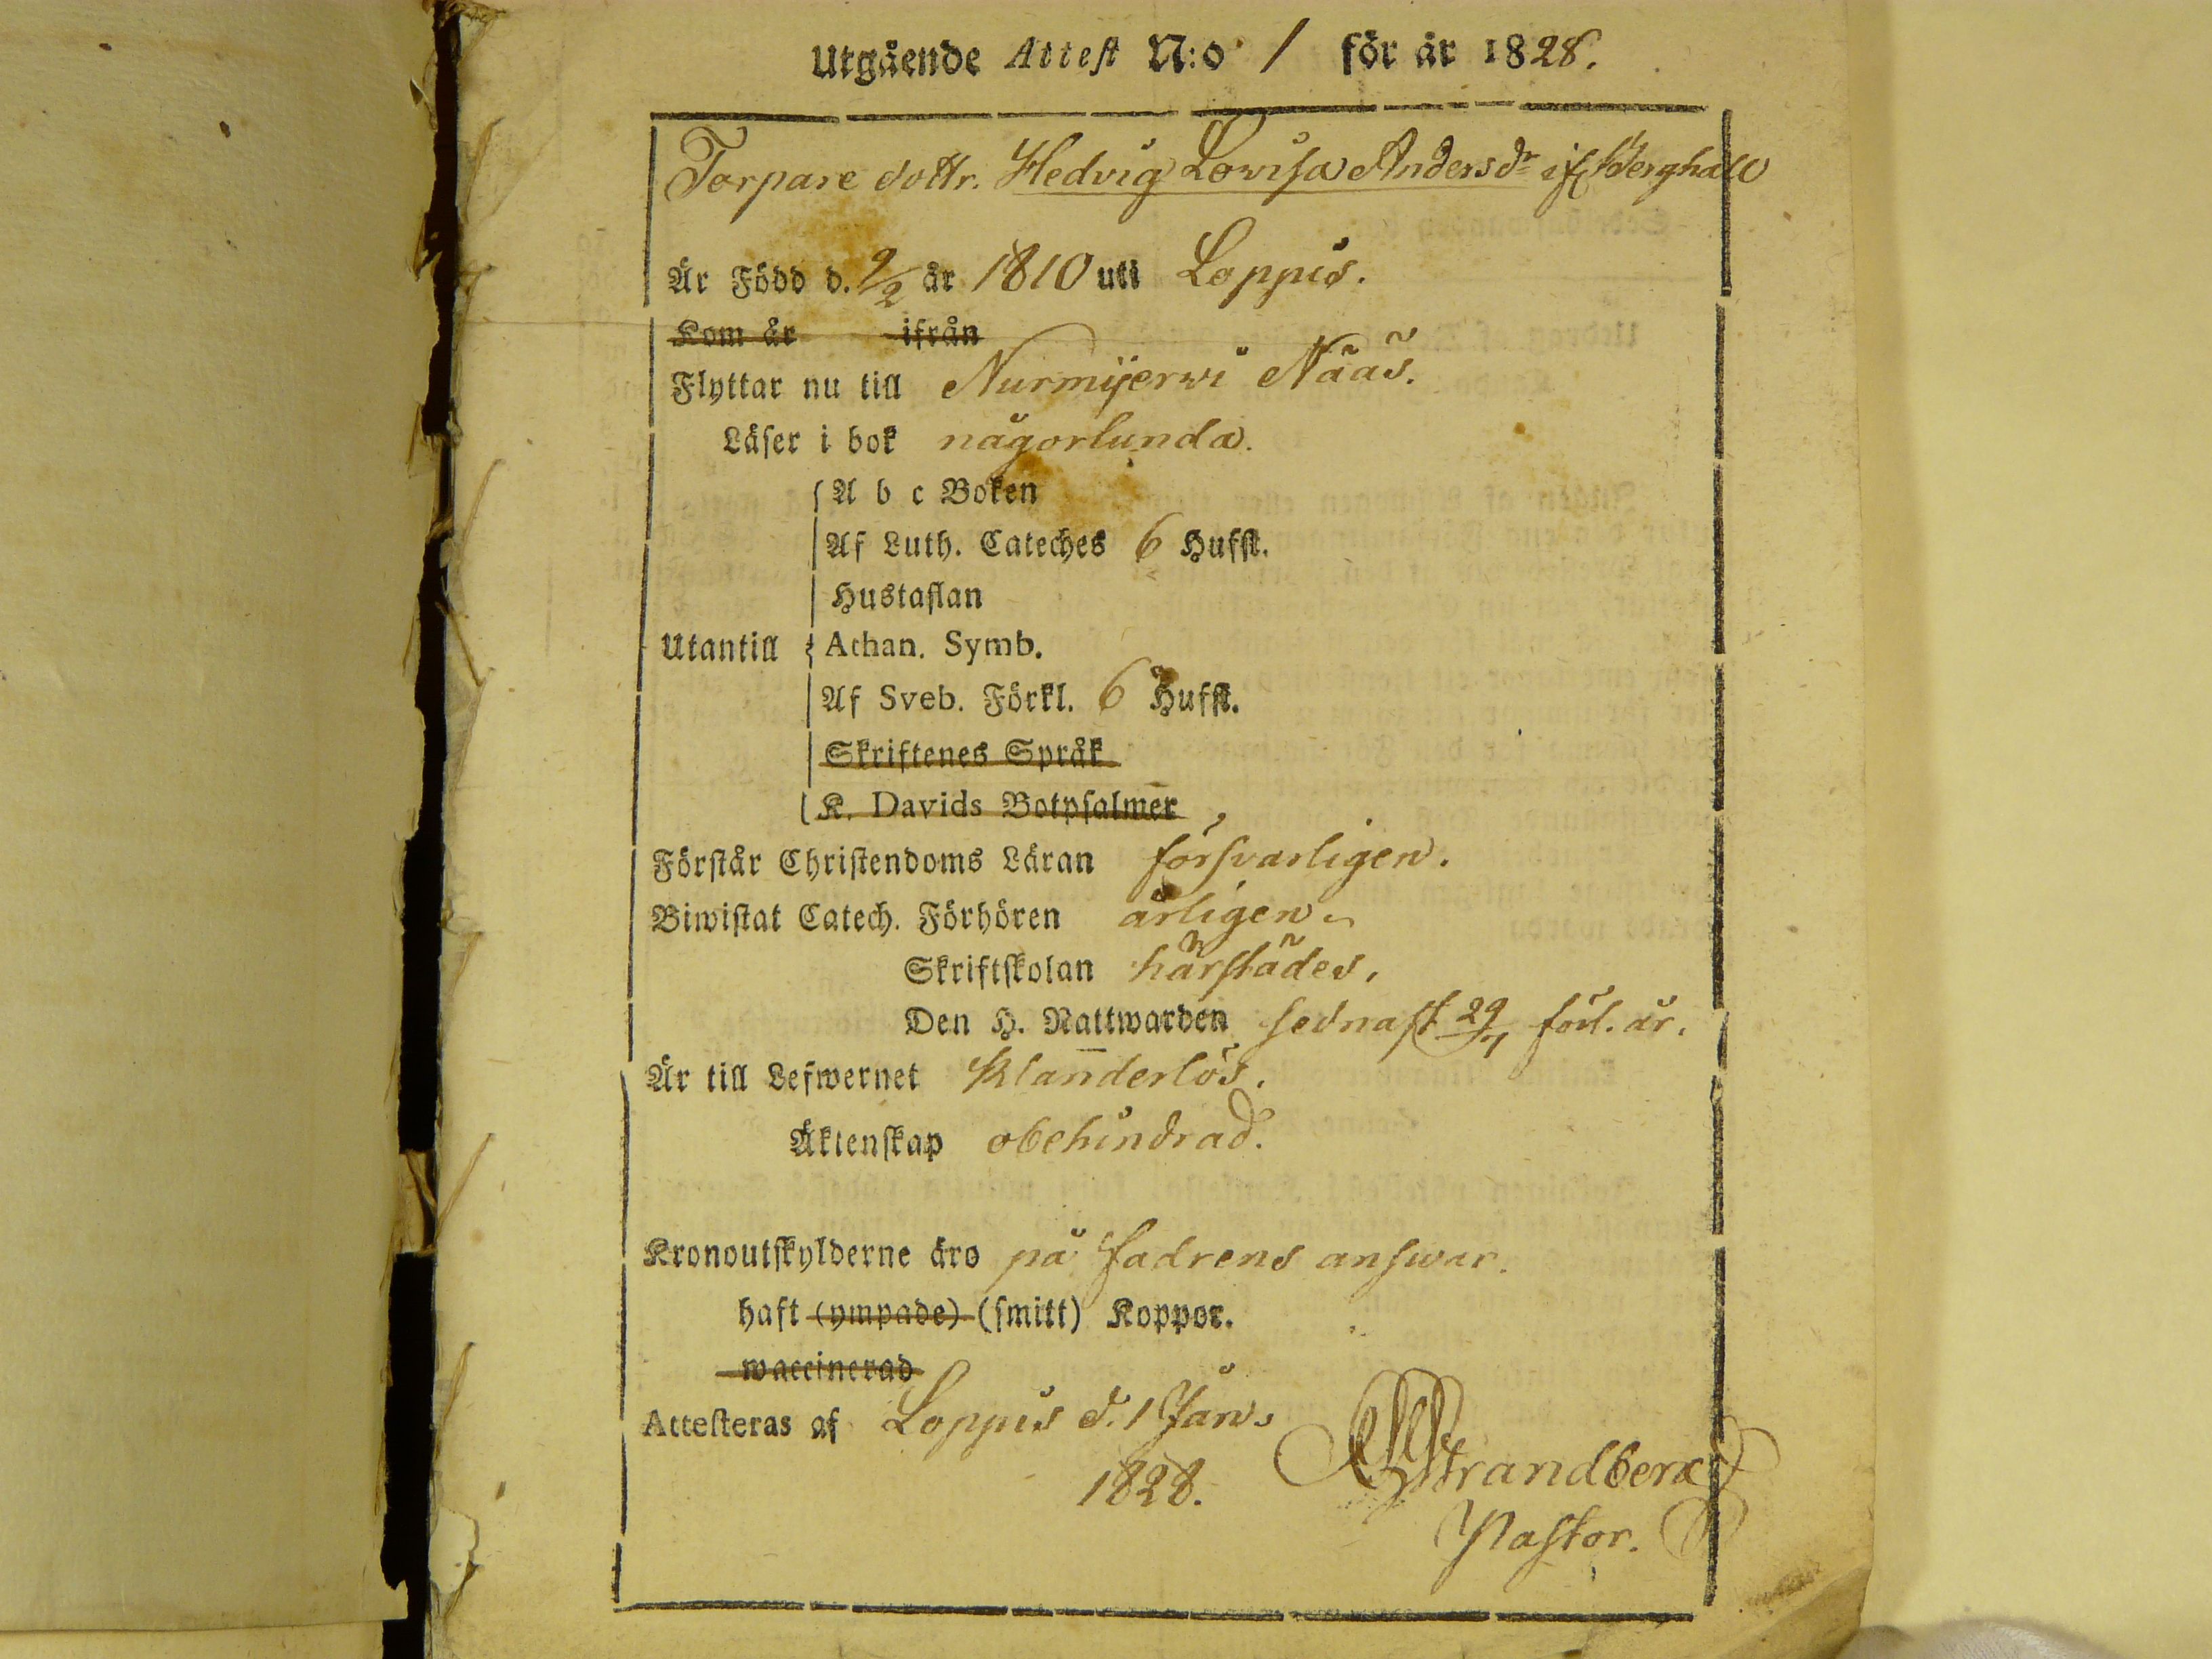 Utgående Attest N:o 1 för år 1828.
Torpare dottr. Hedvig Lovisa Andersdr if Berghäll
Är Född d. 9/2 år 1810 uti Loppis.
Kom år ifrån
Flyttar nu till Nurmijerwi Nääs.
Läser i bok någorlunda.
A b c Boken
Af Luth. Cateches 6 Hufst.
Hustaflan
Utantill Athan. Symb.
Af Sveb. Förkl. 6 Hufst.
Skriftenes Språk
K. Davids Botpsalmer
Förstår Christendoms Läran försvarligen.
Biwistat Catech. Förhören årligen
Skriftskolan härstädes.
Den H. Nattwarden sednast 29/7 förl. år.
Är till Lefwernet Klanderlös.
Äktenskap obehindrad.
Kronoutskylderne äro på fadrens answar.
haft (ympade) (smitt) Koppor.
waccinerad
Attesteras af Loppis d. 1 Jan.
1828. Strandberg
Pastor.